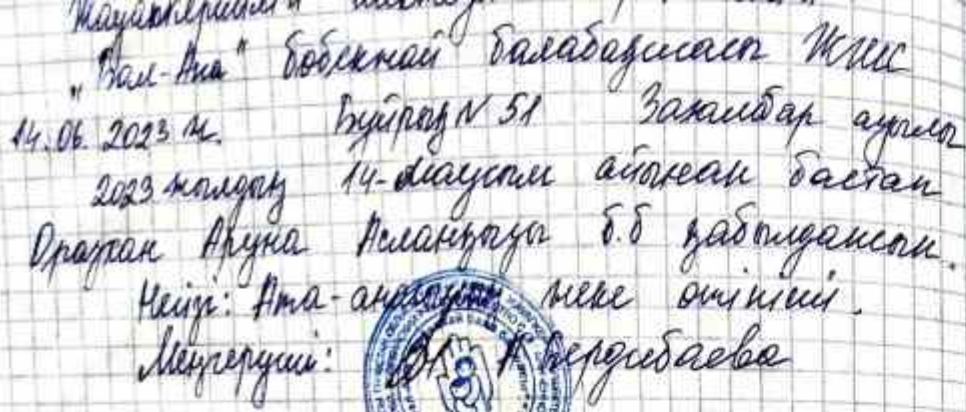 Жауапкершілігі
„Бал-Ана“ бөбекжай балабақшасы ЖШС
14.06.2023 ж. Бұйрық N 51 Зақамбар ауылы
2023 жылдың 14-маусым айынан бастап
Оразхан Аруна Асланқызы б.б қабылдансын.
Негізі: Ата-анасының жеке өтініші.
Меңгеруші: Бердибаева